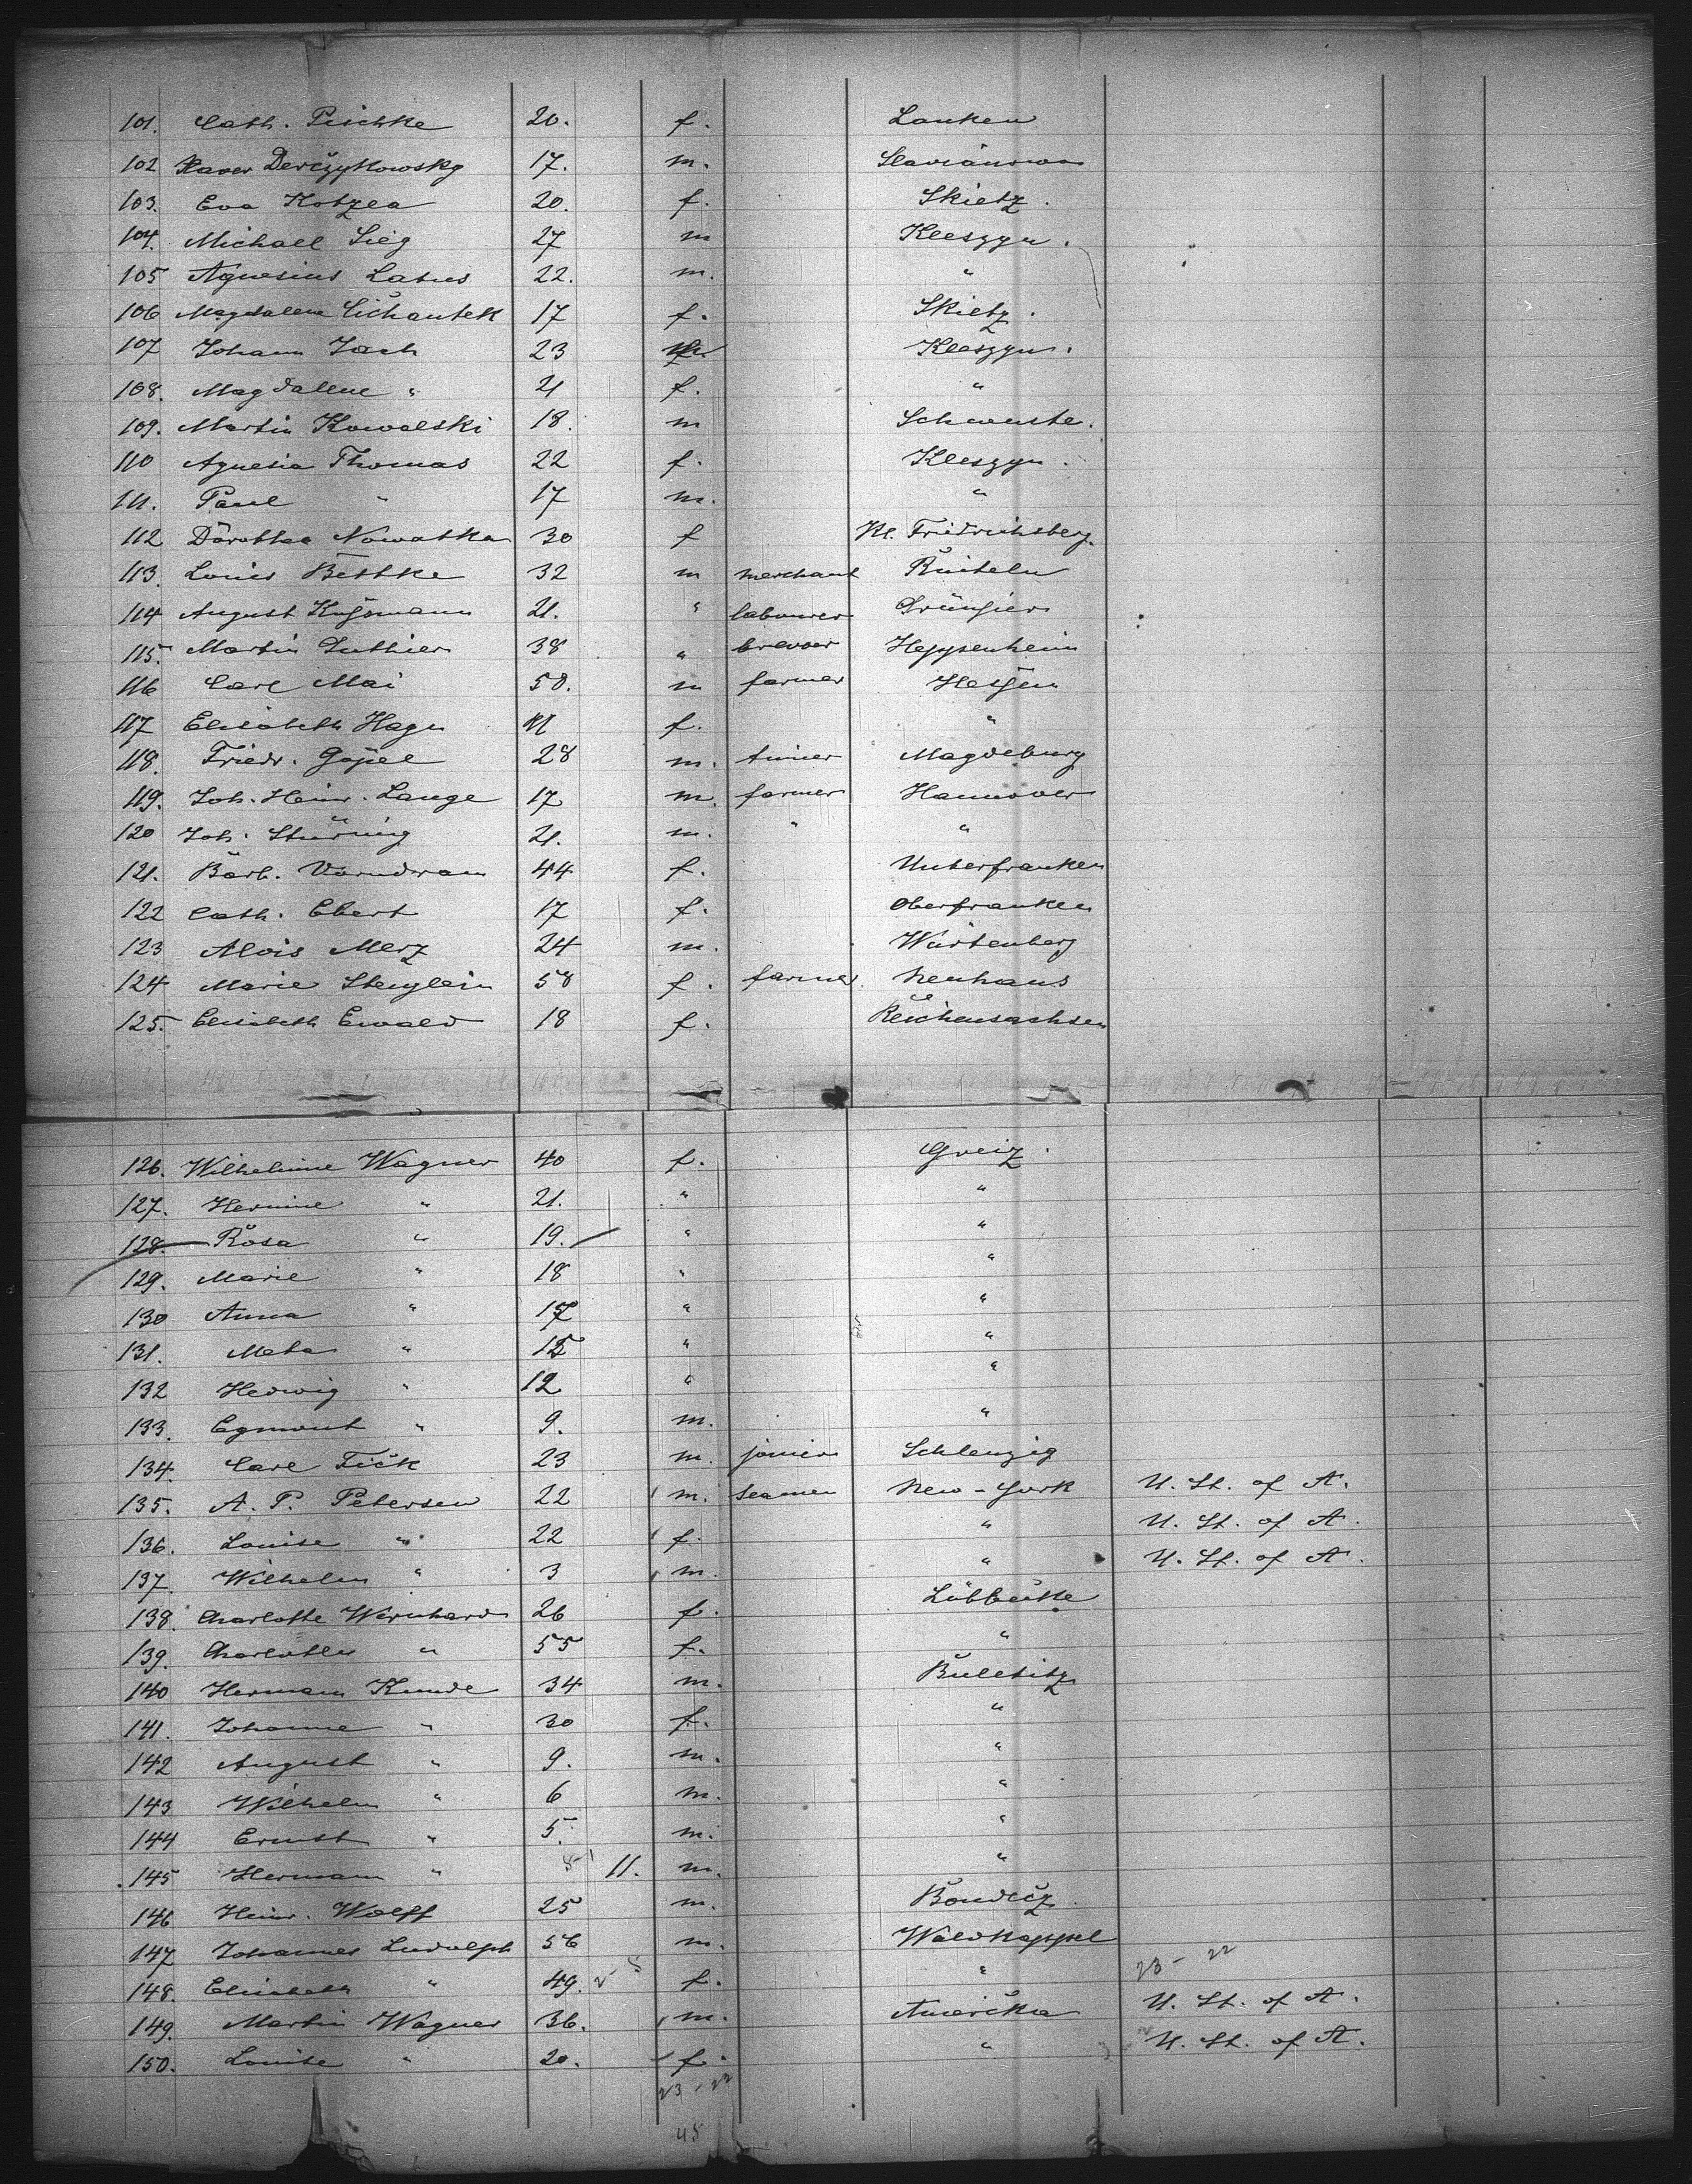 101. Cath. Pischke 20. f. Lanken
102 Xaver Derczykowsky 17. m. Slavianowo
103. Eva Kotzea 20. f. Skietz.
104. Michael Sieg 27 m Kleszyn.
105 Agnesius Latus 22. m. "
106 Magdalene Cichantek 17 f. Skietz.
107 Johann Jach 23 m Kleszyn.
108. Magdalene " 21 f. "
109. Martin Kowalski 18. m Schwente.
110 Agnesia Thomas 22 f. Kleszyn.
111. Paul " 17 m. "
112 Dorothea Nowatka 30 f Kl. Friedrichsberg.
113. Louis Bethke 32 m merchant
114 August 21. " labourer
115. Martin Luthier 38 " brewer Heppenheim
116 Carl Mai 50. m farmer Hessen
117 Elisabeth Hagn f. "
118. Friedr. Göpel 28 m. Magdeburg
119. Joh. Heinr. Lange 17 m. farmer Hannover
120 Joh. Stüring 21. m. " "
121. Barb. Vorndran 44 f. Unterfranken
122 Cath. Ebert 17 f. Oberfranken
123 Alois Merz 24 m. Würtenberg
124 Marie Stenglein 58 f. farmer. Neuhaus
125. Elisabeth Ewald 18 f. Reichensachsen
126. Wilhelmine Wagner 40 f. Greiz.
127. Hermine " 21. " "
128. Rosa " 19. " "
129. Marie " 18 " "
130 Anna " 17 " "
131. Meta " 15 " "
132 Hedwig " 12 " "
133. Egmont " 9. m. "
134. Carl Fick 23 m. joiner Schlenzig
135. A. P. Petersen 22 m. seamen New-York U. St. of A.
136. Louise " 22 f. " U. St. of A.
137. Wilhelm " 3 m. " U. St. of A.
138. Charlotte Wernhard 26 f. Lübbecke
139. Charlotte " 55 f. "
140 Hermann Kunde 34 m. Buletitz
141. Johanne " 30 f. "
142 August " 9. m. "
143 Wilhelm " 6 m. "
144 Ernst " 5. m. "
145 Hermann " 11. m. "
146 Heinr. Wolff 25 m.
147 Johannes Ludolph 56 m. Waldkappel
148. Elisabeth " 49. f. " 23 - 22
149. Martin Wagner 36. m. America U. St. of A.
150. Louise " 20. f. " U. St. of A.
23 - 22
45